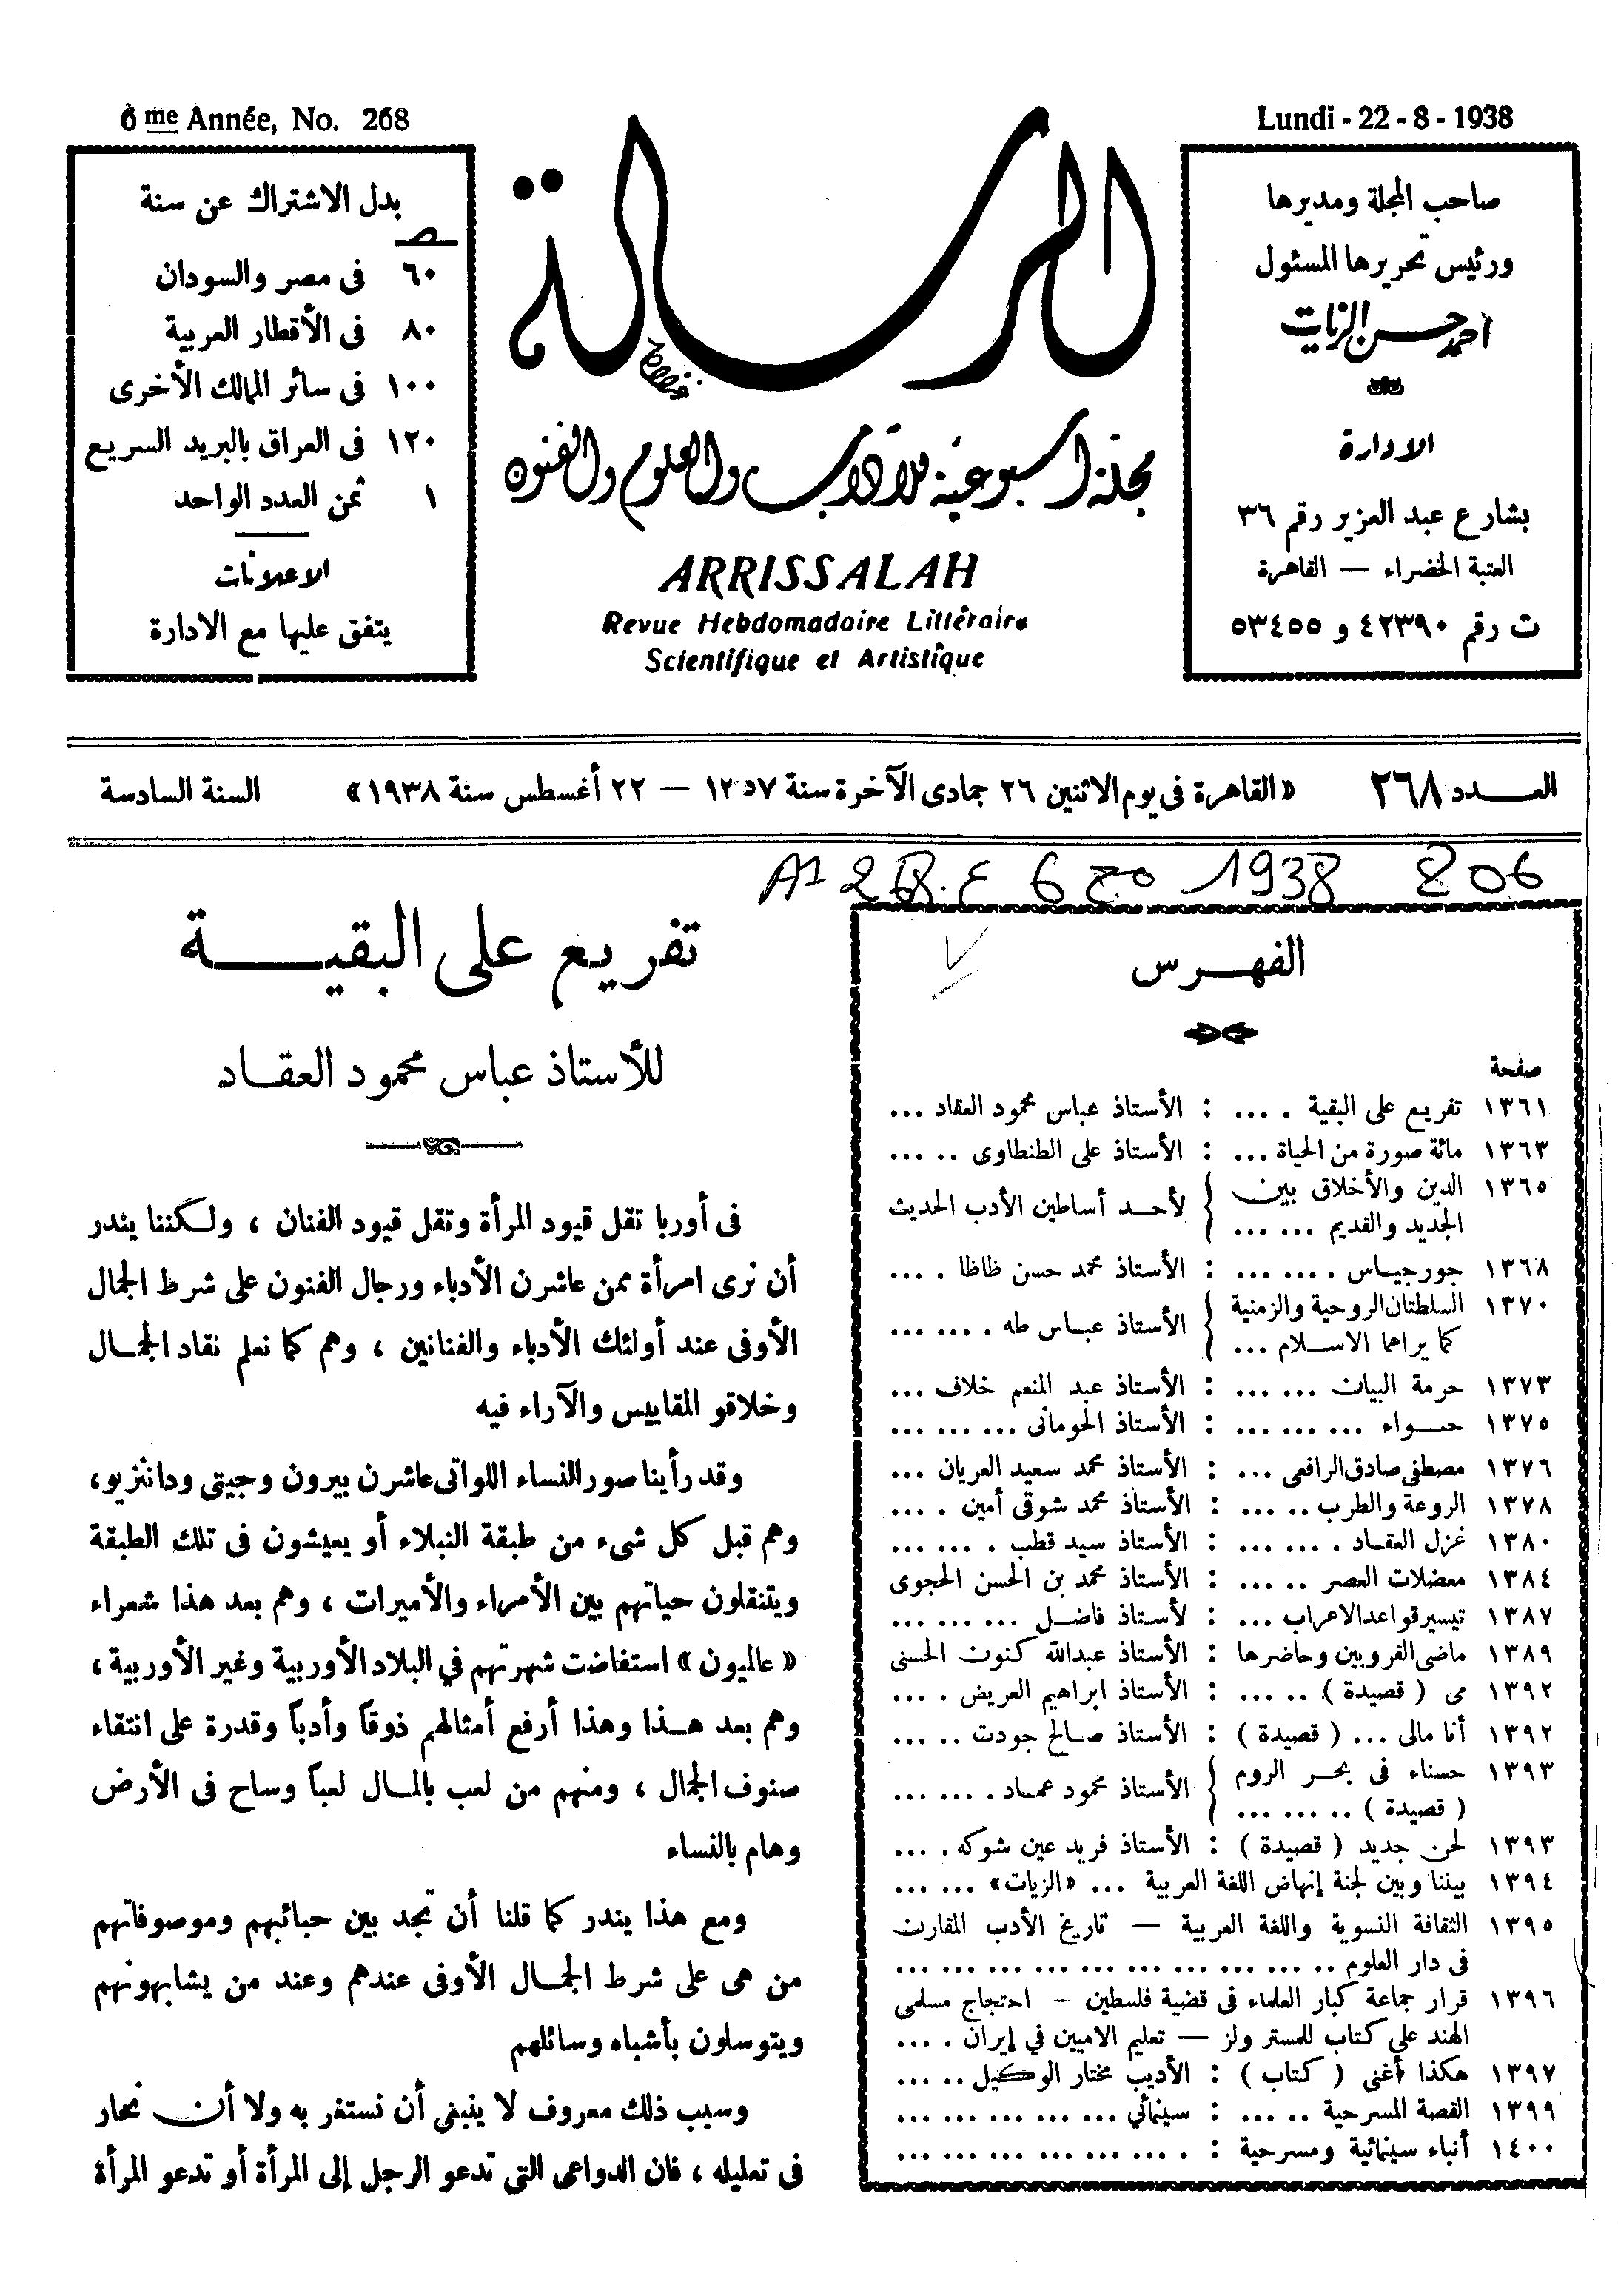 6me Année, No. 268
Lundi - 22 - 8 - 1938
صاحب المجلة ومديرها
ورئيس تحريرها المسئول
احمد حسن الزيات
الادارة
بشارع عبد العزيز رقم ٣٦
العتبة الخضراء — القاهرة
ت رقم ٤٢٣٩٠ و ٥٣٤٥٥
الرسالة
مجلة أسبوعية للآداب والعلوم والفنون
ARRISSALAH
Revue Hebdomadaire Littéraire
Scientifique et Artistique
بدل الاشتراك عن سنة
ص
٦٠ فى مصر والسودان
٨٠ فى الأقطار العربية
١٠٠ فى سائر الممالك الأخرى
١٢٠ فى العراق بالبريد السريع
١ ثمن العدد الواحد
الاعلانات
يتفق عليها مع الادارة
العـــدد ٢٦٨ «القاهرة فى يوم الاثنين ٢٦ جمادى الآخرة سنة ١٣٥٧ — ٢٢ أغسطس سنة ١٩٣٨» السنة السادسة
1938 806
الفهـــرس
صفحة
١٣٦١ تفريع على البقية . ... : الأستاذ عباس محمود العقاد ...
١٣٦٣ مائة صورة من الحياة ... : الأستاذ على الطنطاوى .. ...
١٣٦٥ الدين والأخلاق بين
الجديد والقديم ... ... } لأحـد أساطين الأدب الحديث
١٣٦٨ جورجيـاس . ... ... : الأستاذ محمد حسن ظاظا . ...
١٣٧٠ السلطتان الروحية والزمنية
كما يراهما الاسـلام ... } الأستاذ عبـاس طه . ... ...
١٣٧٣ حرمة البيان ... ... : الأستاذ عبد المنعم خلاف ...
١٣٧٥ حـواء ... ... ... : الأستاذ الحومانى ... ... ...
١٣٧٦ مصطفى صادق الرافعى ... : الأستاذ محمد سعيد العريان ...
١٣٧٨ الروعة والطرب .. ... : الأستاذ محمد شوقى أمين . ...
١٣٨٠ غزل العقـاد . ... ... : الأستاذ سيد قطب . ... ...
١٣٨٤ معضلات العصر .. ... : الأستاذ محمد بن الحسن الحجوى
١٣٨٧ تيسير قواعد الاعراب ... : لأسـتاذ فاضـل ... ... ...
١٣٨٩ ماضى القرويين وحاضرها : الأستاذ عبدالله كنون الحسنى
١٣٩٢ مى ( قصيدة ) .. ... : الأستاذ ابراهيم العريض . ...
١٣٩٢ أنا مالى ... ( قصيدة ) : الأستاذ صـالح جودت .. ...
١٣٩٣ حسناء فى بحـر الروم
( قصيدة ) .. ... ... } الأستاذ محمود عمـاد . ... ...
١٣٩٣ لحن جديد ( قصيدة ) : الأستاذ فريد عين شوكه . ...
١٣٩٤ بيننا وبين لجنة إنهاض اللغة العربية ... «الزيات» ... ...
١٣٩٥ الثقافة النسوية واللغة العربية — تاريخ الأدب المقارن
فى دار العلوم .. ... ... ... ... ... ... ... ... ...
١٣٩٦ قرار جماعة كبار العلماء فى قضية فلسطين — احتجاج مسلمى
الهند علي كتاب للمستر ولز — تعليم الاميين في إيران . ...
١٣٩٧ هكذا أغنى ( كتاب ) : الأديب مختار الوكيل .. ...
١٣٩٩ القصة المسرحية .. ... : سينمائي ... ... ... ... ...
١٤٠٠ أنباء سينمائية ومسرحية : . ... ... ... ... ... ...
تفريع على البقيـــة
للأستاذ عباس محمود العقـاد
فى أوربا تقل قيود المرأة وتقل قيود الفنان ، ولـكننا يندر
أن نرى امرأة ممن عاشرن الأدباء ورجال الفنون على شرط الجمال
الأوفى عند أولئك الأدباء والفنانين ، وهم كما نعلم نقاد الجمـال
وخلاقو المقاييس والآراء فيه
وقد رأينا صور النساء اللواتى عاشرن بيرون وجيتى ودانتزيو،
وهم قبل كل شىء من طبقة النبلاء أو يعيشون فى تلك الطبقة
ويتنقلون حياتهم بين الأمراء والأميرات ، وهم بعد هذا شعراء
«عالميون» استفاضت شهرتهم في البلاد الأوربية وغير الأوربية ،
وهم بعد هـذا وهذا أرفع أمثالهم ذوقاً وأدباً وقدرة على انتقاء
صنوف الجمال ، ومنهم من لعب بالمـال لعباً وساح فى الأرض
وهام بالنساء
ومع هذا يندر كما قلنا أن تجد بين حبائبهم وموصوفاتهم
من هى على شرط الجمـال الأوفى عندهم وعند من يشابهونهم
ويتوسلون بأشباه وسائلهم
وسبب ذلك معروف لا ينبغى أن نستغر به ولا أن نحار
فى تعليله ، فان الدواعى التى تدعو الرجل إلى المرأة أو تدعو المرأة